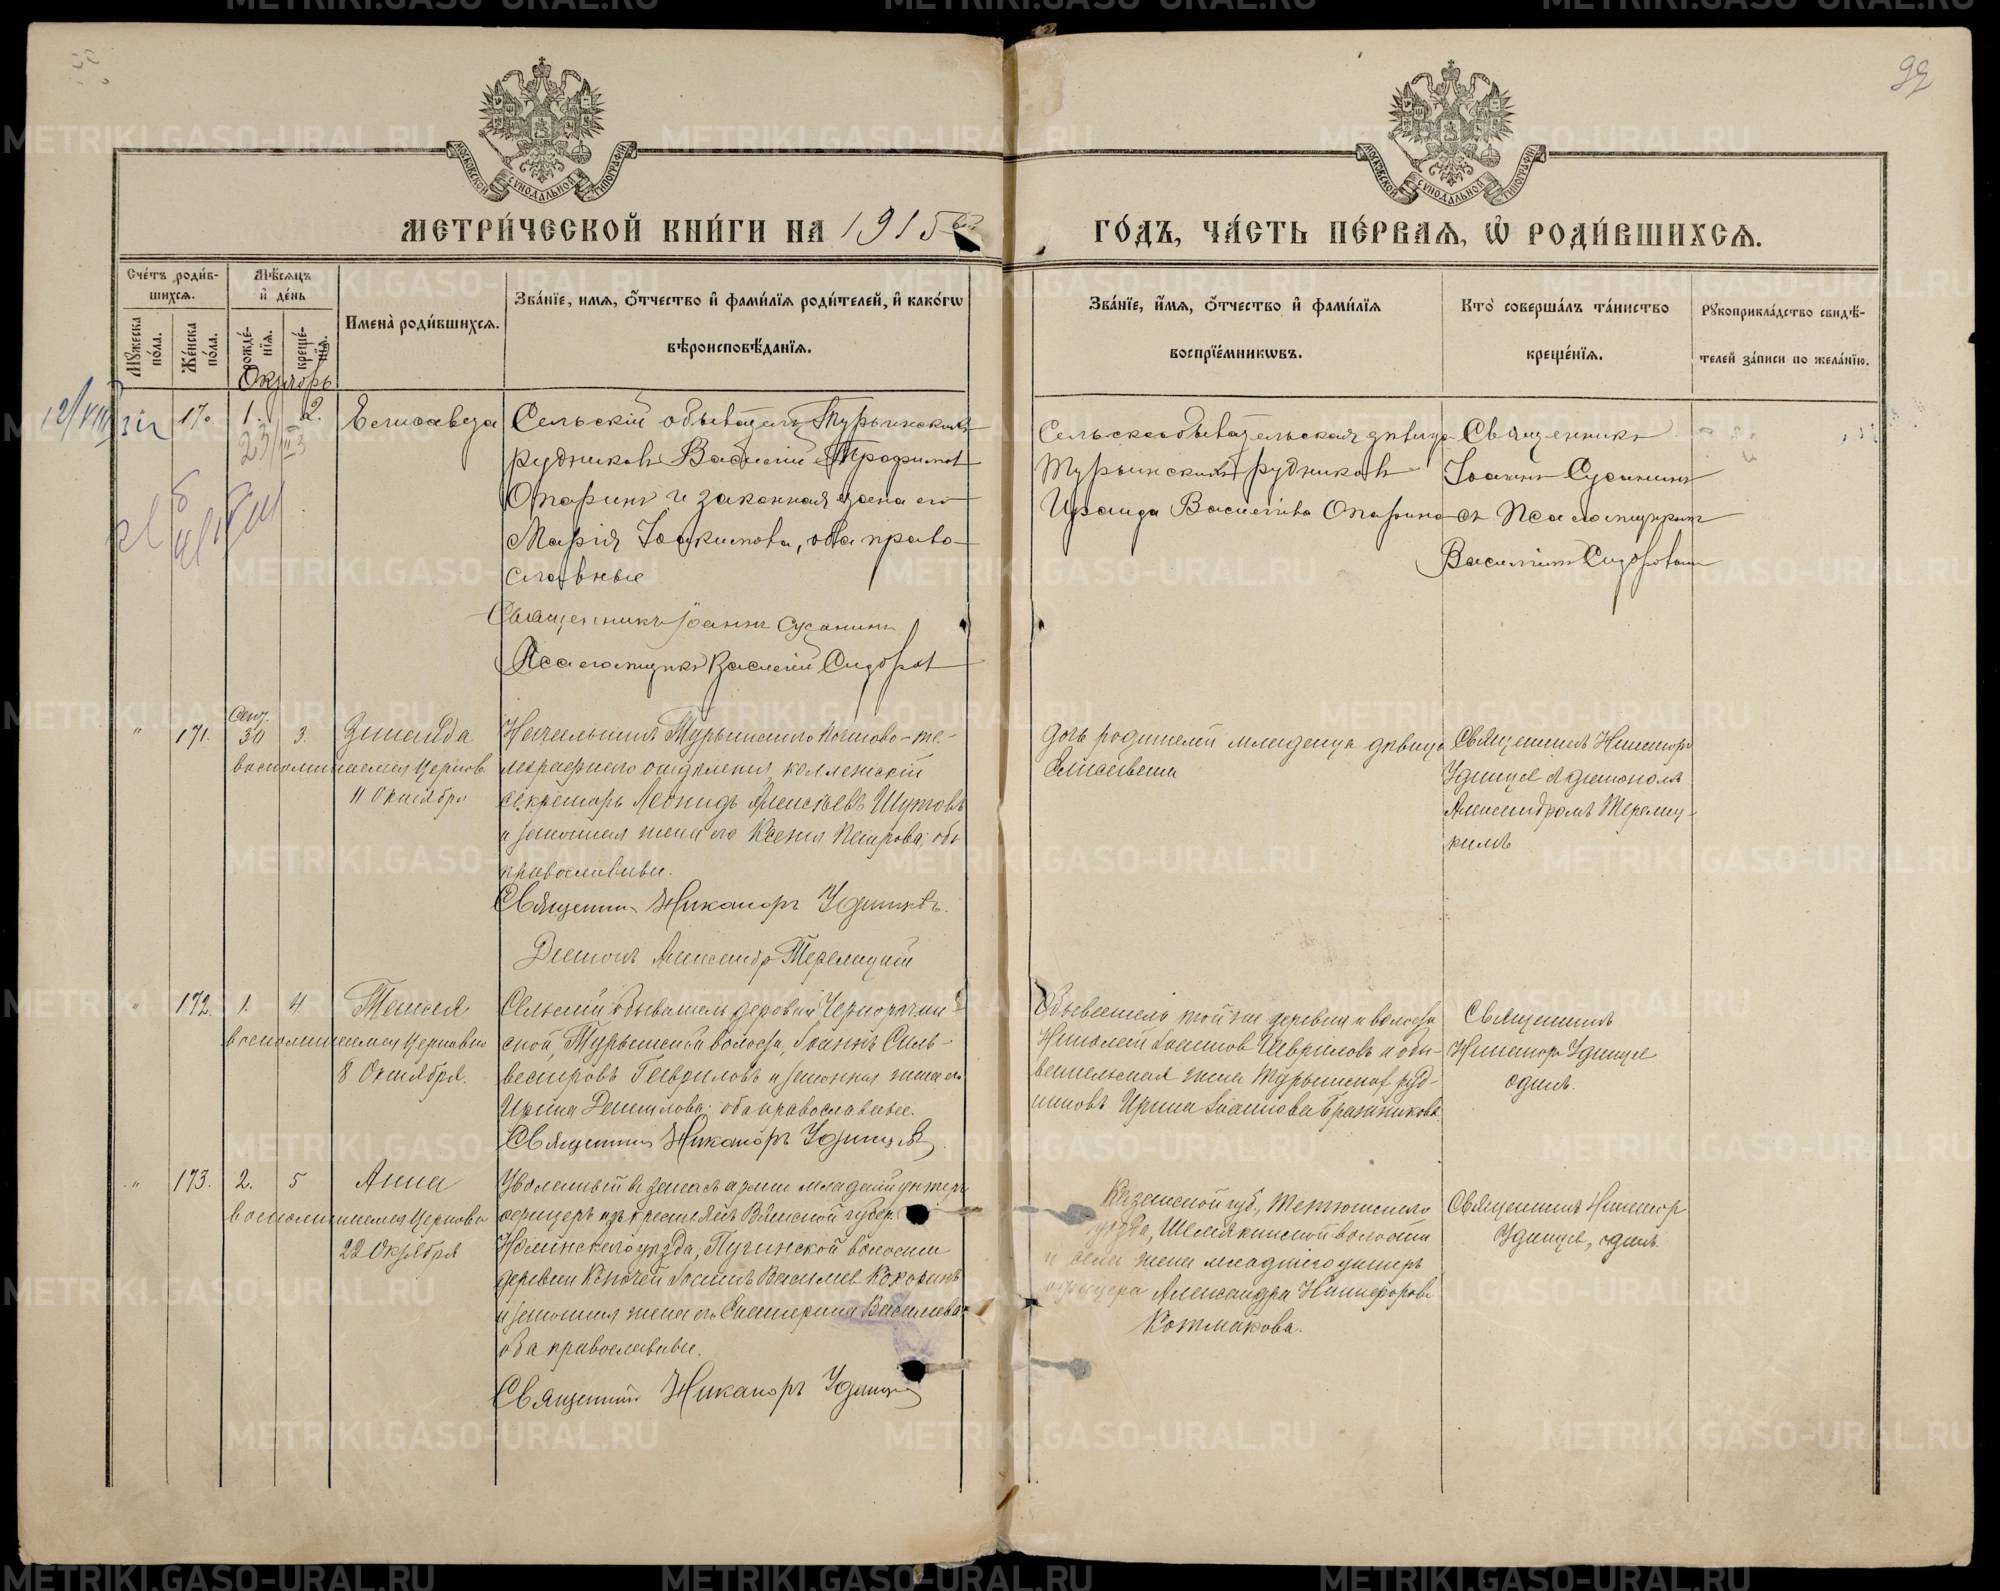 99
МОСКОВСКОЙ СѴНОДАЛЬНОЙ ТИПОГРАФІИ
МОСКОВСКОЙ СѴНОДАЛЬНОЙ ТИПОГРАФІИ
МЕТРИ́ЧЕСКОЙ КНИ́ГИ НА 1915
ГО́ДЪ, ЧА́СТЬ ПЕ́РВАѦ, Ѡ҆ РОДИ́ВШИХСѦ.
Сче́тъ роди́в-
шихсѧ.
Мѣ́сѧцъ
и҆ де́нь
Мꙋ́жеска по́ла.
Же́нска по́ла.
рожде́-
нїѧ.
креще́-
нїѧ.
Имена̀ роди́вшихсѧ.
Зва́нїе, имѧ, ѻ҆́тчество и҆ фами́лїѧ роди́телей, и҆ како́гѡ
вѣроисповѣ́данїѧ.
Зва́нїе, и҆́мѧ, ѻ҆́тчество и҆ фами́лїѧ
воспрїе́мникѡвъ.
Кто̀ соверша́лъ та́инство
креще́нїѧ.
Рꙋкоприкла́дство свидѣ́-
телей за́писи по жела́нїю.
Октябрь
170 1. 2. Елисавета
Сельскій обыватель Турьинскихъ
рудниковъ Василій Трофимовъ
Опаринъ и законная жена его
Марія Іоакимова, оба право-
славные
Священникъ Іоаннъ Сусанинъ
Псаломщикъ Василій Сидоровъ
Сельскообывательская дѣвица
Турьинскихъ рудниковъ
Ираида Васильева Опарина
Священникъ
Іоаннъ Сусанинъ
съ Псаломщикомъ
Василіемъ Сидоровымъ
" 171. Сент. 30 3. Зинаида
воспоминаемая Церков.
11 Октября
Начальникъ Турьинскаго почтово-те-
леграфнаго отдѣленія, коллежскій
секретарь Леонидъ Алексѣевъ Шутовъ
и законная жена его Ксенія Петрова, оба
православные.
Священникъ Никаноръ Удинцевъ.
Діаконъ Александръ Теремицкій
дочь родителей младенца дѣвица
Елисавета
Священникъ Никаноръ
Удинцев діакономъ
Александромъ Теремиц-
кимъ
" 172. 1. 4 Таисія
воспоминаемая Церковію
8 Октября.
Сельскій обыватель деревни
ской, Турьинской волости, Іоаннъ Силь-
вестровъ Гавриловъ и законная жена его
Ирина Данилова: оба православные.
Священникъ Никаноръ Удинцевъ
Обыватель той же деревни и волости
Николай Іоаннов Гавриловъ и обы-
вательская жена Турьинских руд-
никовъ Ирина Іоаннова Бражникова
Священникъ
Никаноръ Удинцев
одинъ.
" 173. 2. 5 Анна
воспоминаемая Церковію
22 Октября
Уволенный въ запасъ арміи младшій унтеръ
офицеръ изъ крестьянъ Вятской губер.
Нолинскаго уѣзда,
деревни
и законная жена его Екатерина Васильева:
оба православные.
Священникъ Никаноръ Удинцев
Казанской губ., Тетюшскаго
уѣзда, Шемякинской волости
и села жена младшаго унтеръ
офицера Александра Никифорова
Колмакова.
Священникъ Никанор
Удинцев, одинъ.
METRIKI.GASO-URAL.RU